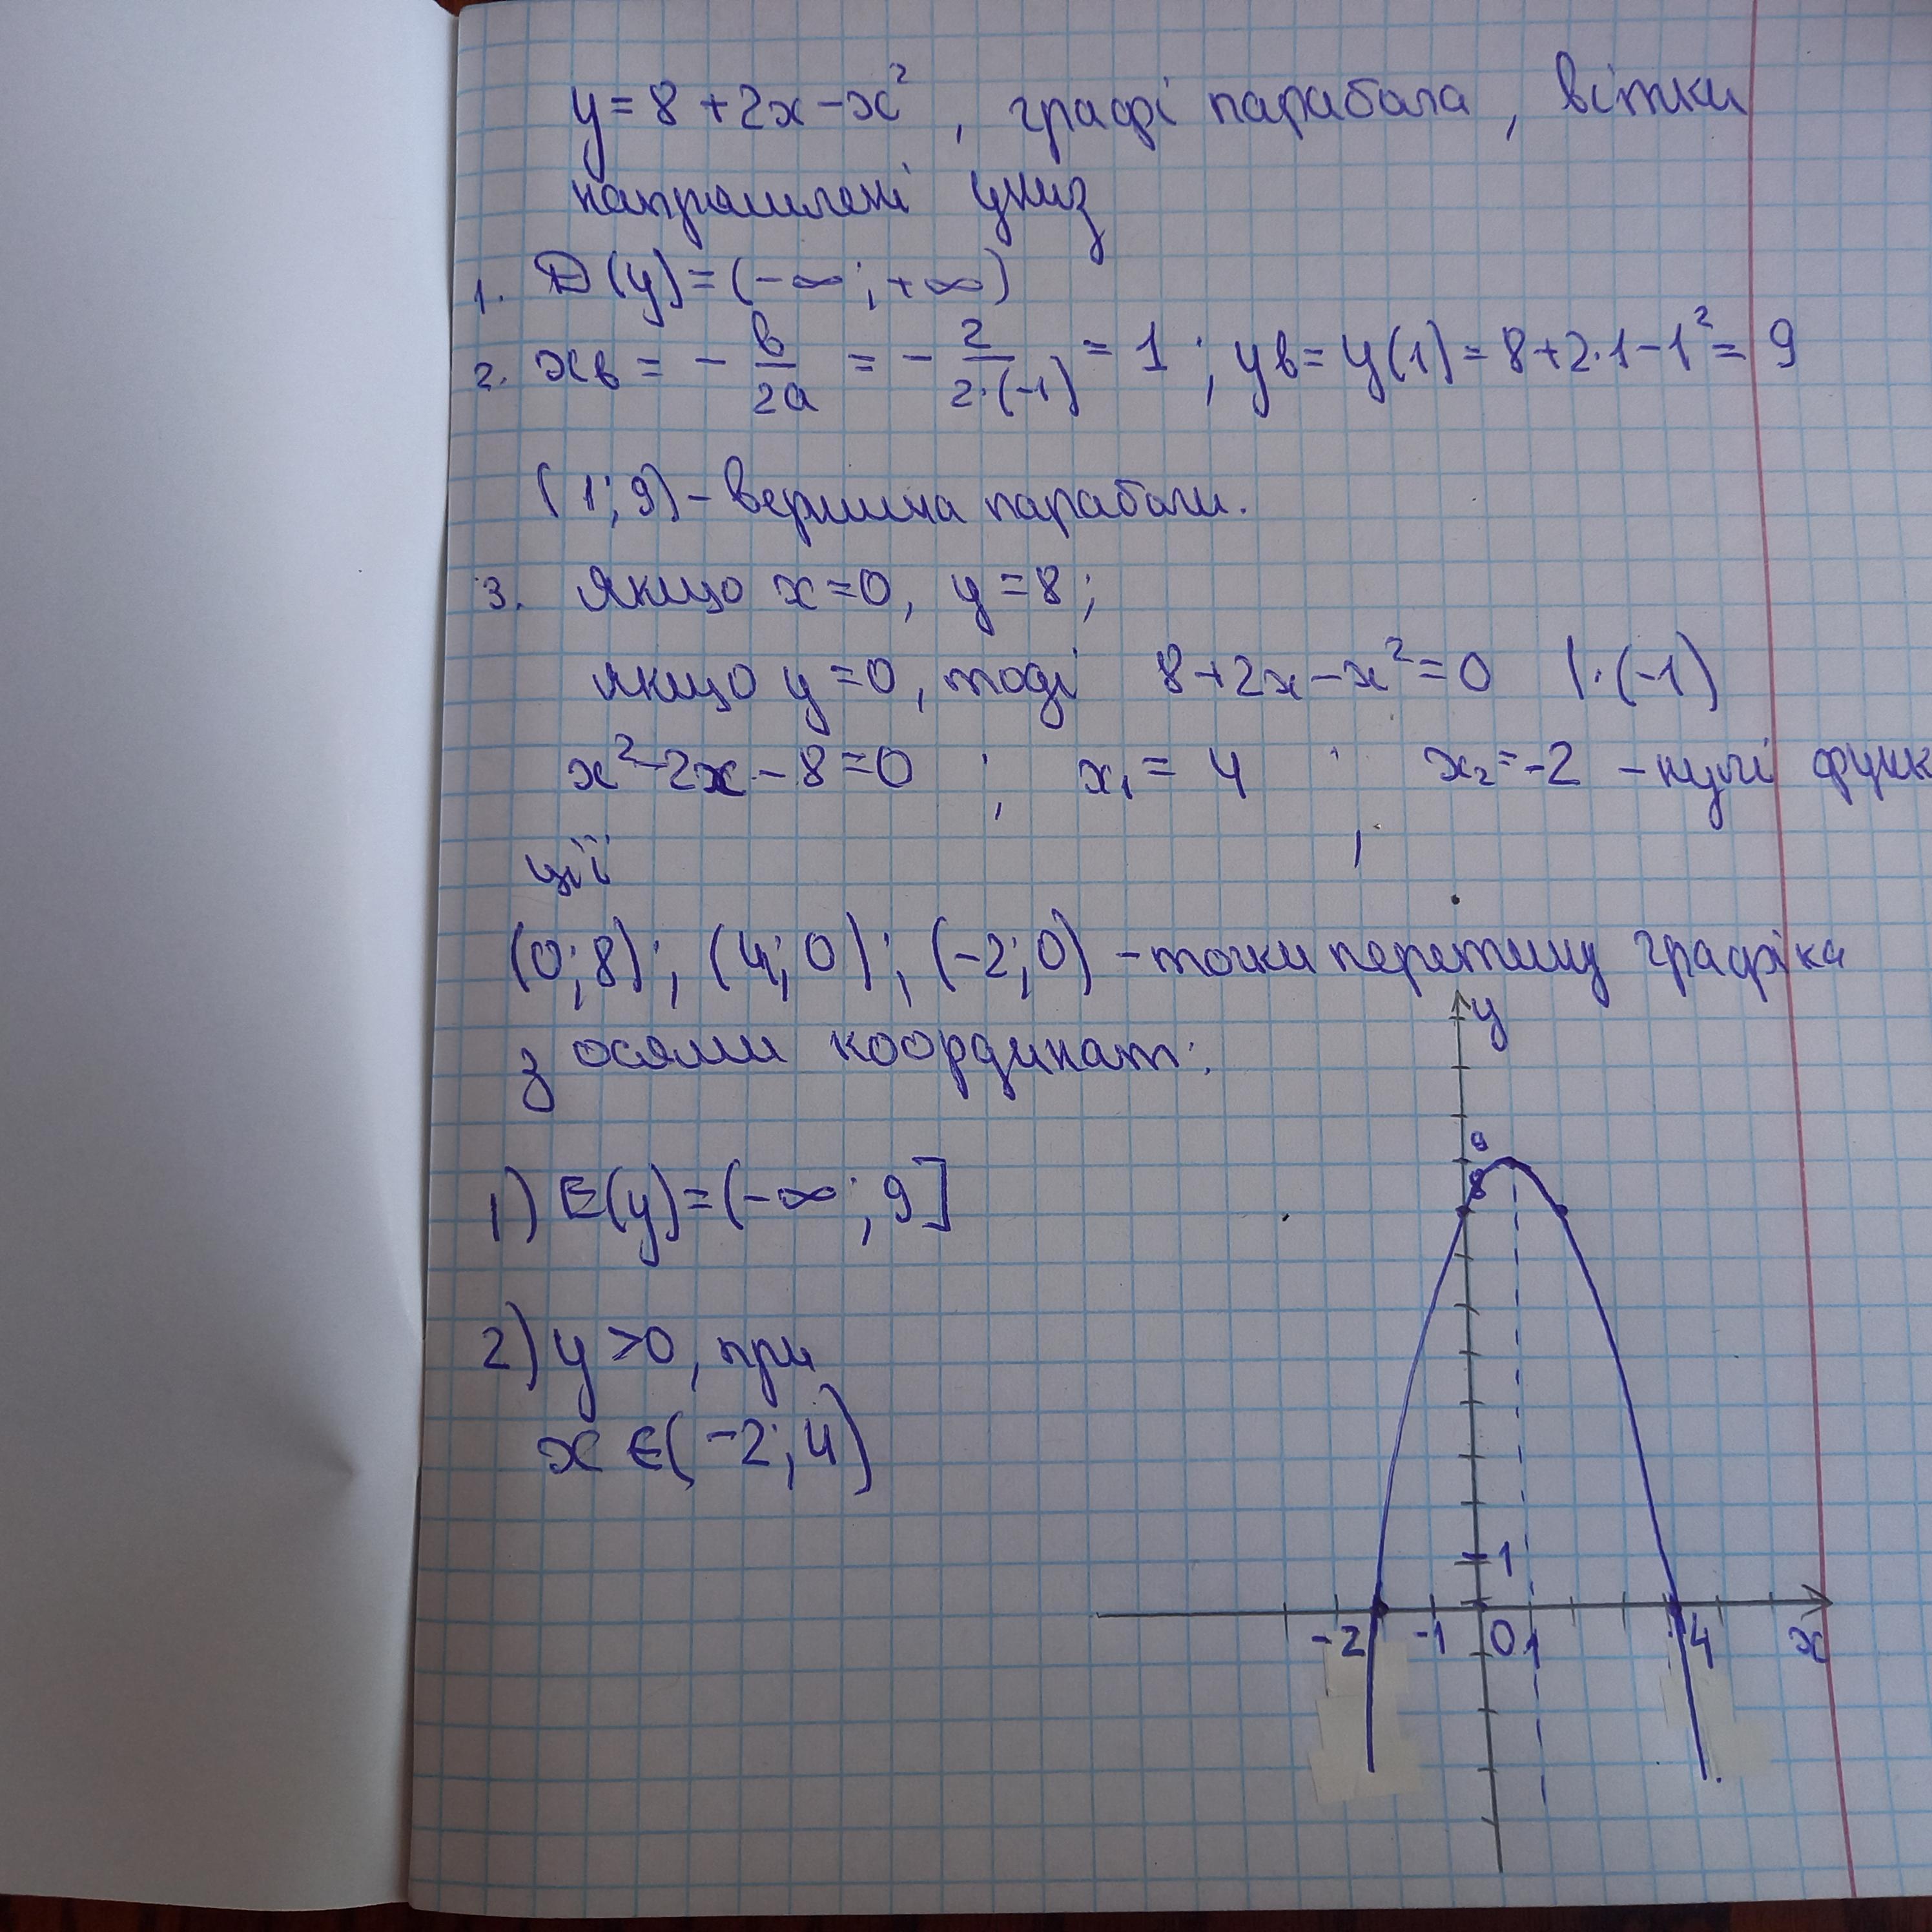 y = 8 + 2x - x², графі парабола, вітки
напрямлені униз
1. D(y) = (-∞; +∞)
2. xв = - b/2a = - 2/2·(-1) = 1; yв = y(1) = 8 + 2·1 - 1² = 9
(1; 9) - вершина параболи.
3. Якщо x = 0, y = 8;
якщо y = 0, тоді 8 + 2x - x² = 0 |·(-1)
x² - 2x - 8 = 0 ; x₁ = 4 ; x₂ = -2 - нулі функ
ції
(0; 8); (4; 0); (-2; 0) - точки перетину графіка
з осями координат.
1) E(y) = (-∞; 9]
2) y > 0, при
x ∈ (-2; 4)
y
9
8
1
-2 -1 0 1 4 x